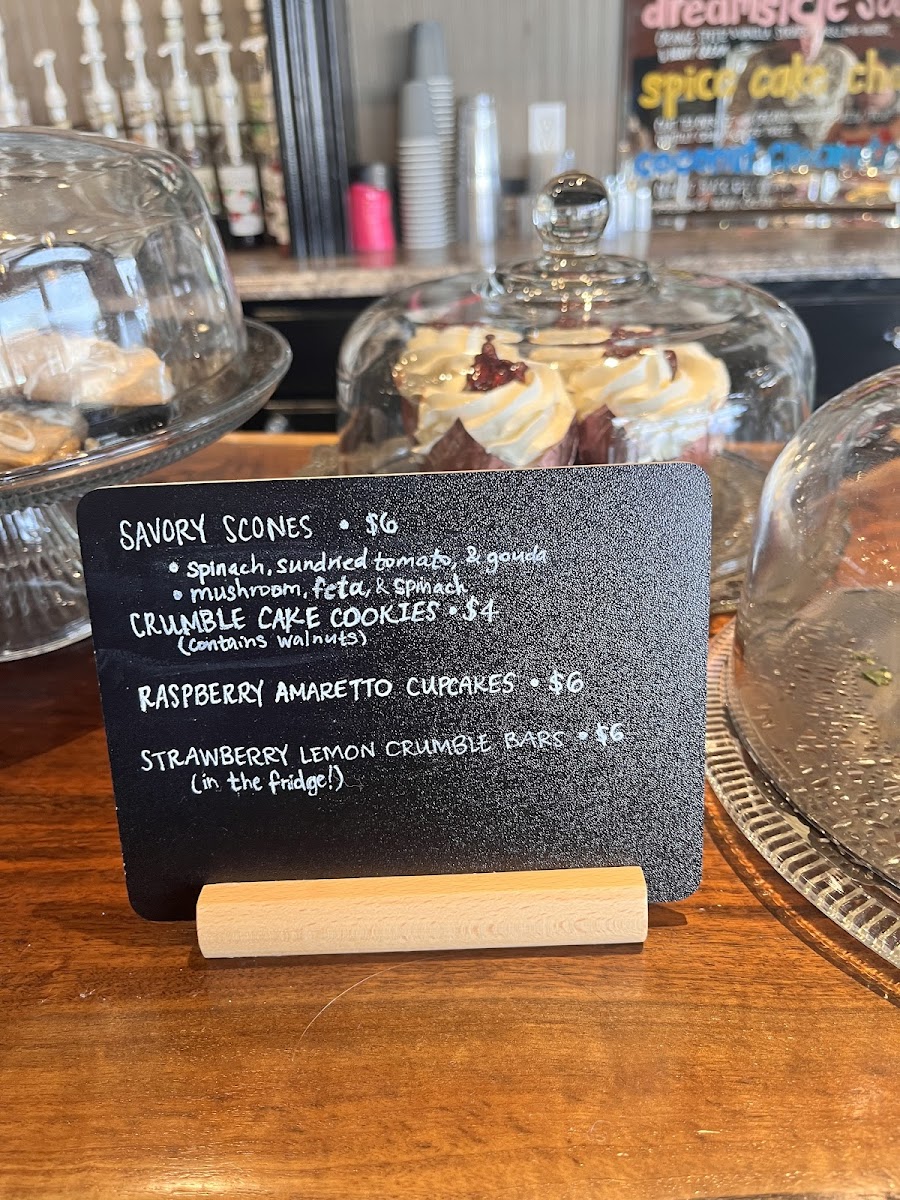 dreamsicle
spice cake
SAVORY SCONES • $6
• spinach, sundried tomato, & gouda
• mushroom, feta, & spinach
CRUMBLE CAKE COOKIES • $4
(contains walnuts)
RASPBERRY AMARETTO CUPCAKES • $6
STRAWBERRY LEMON CRUMBLE BARS • $6
(in the fridge!)